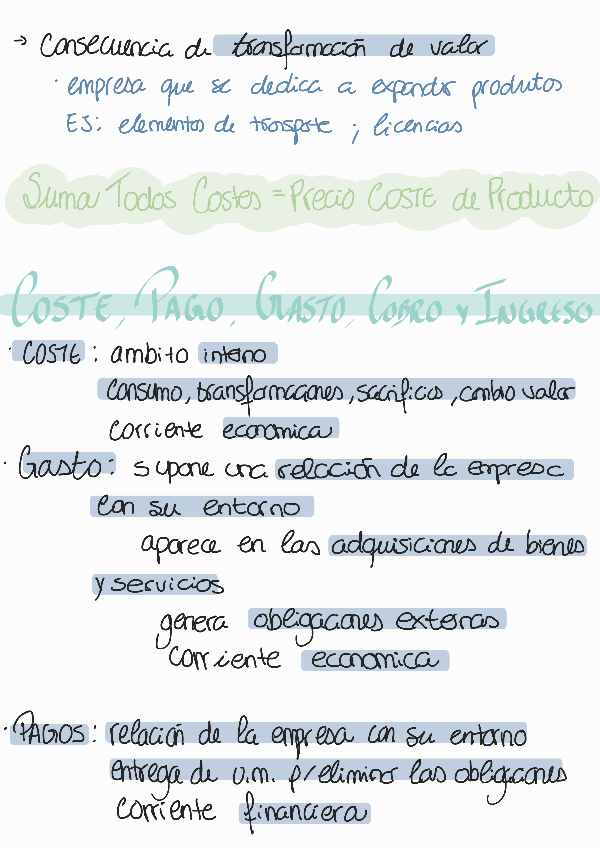 → Consecuencia de transformación de valor
· empresa que se dedica a expandir produtos
EJ: elementos de transporte ; licencias
Suma Todos Costes = Precio COSTE de Producto
COSTE, PAGO, GASTO, COBRO y INGRESO
· COSTE : ambito interno
consumo, transformaciones, sacrificios, cambio valor
corriente economica
· Gasto: supone una relación de la empresa
con su entorno
aparece en las adquisiciones de bienes
y servicios
genera obligaciones externas
corriente economica
· PAGOS : relación de la empresa con su entorno
entrega de u.m. p/eliminar las obligaciones
corriente financiera